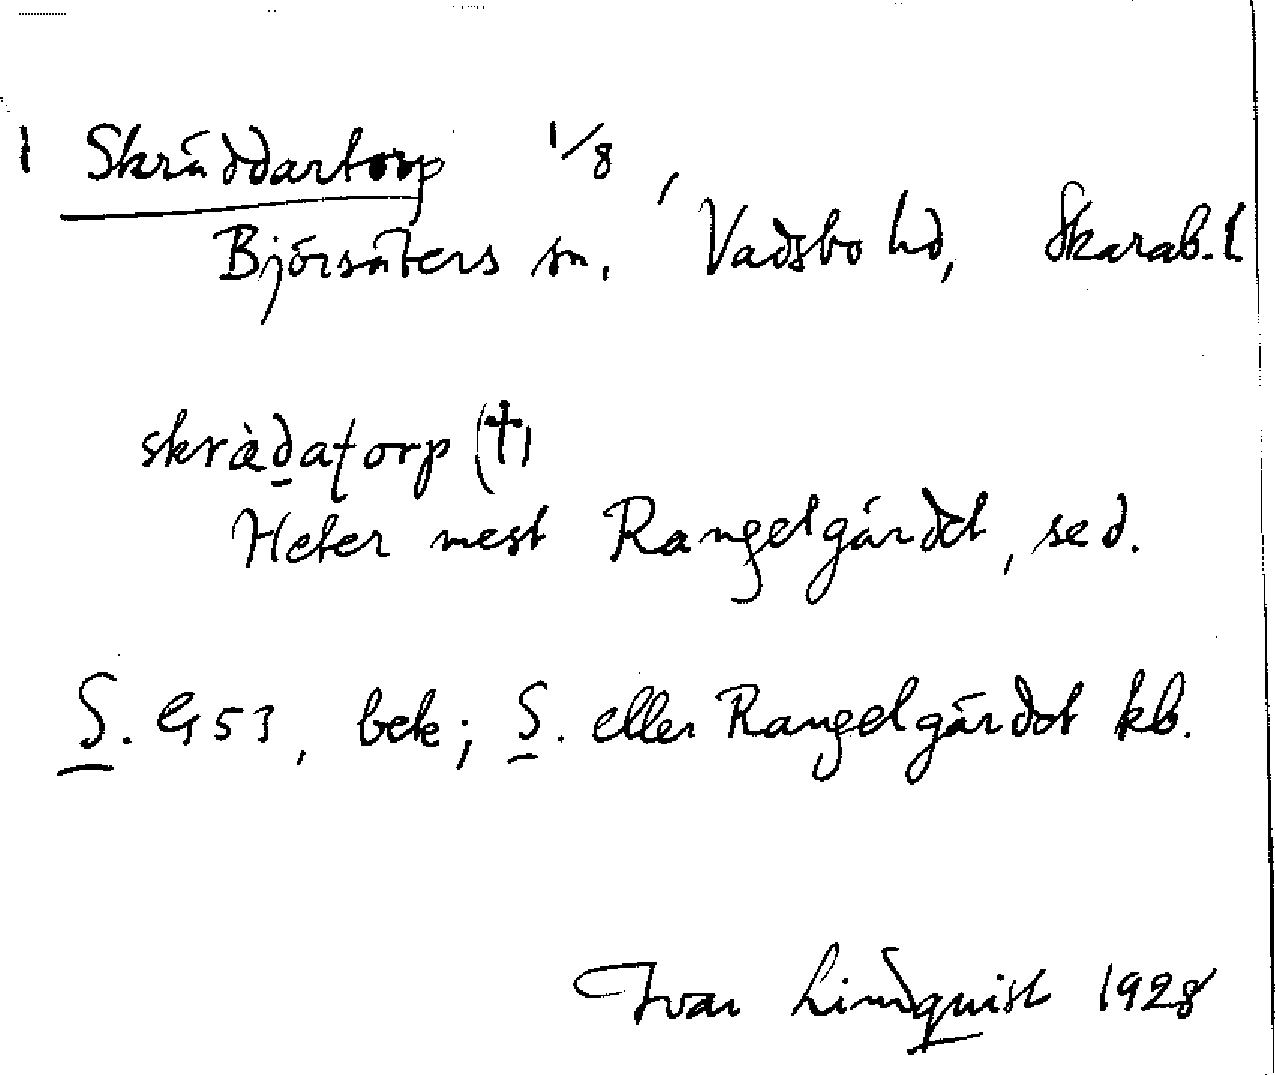 1 Skräddartorp 1/8,
Björsäters sn. Vadsbo hd, Skarab. l
skrà̀datorp (†)
Heter mest Rangelgärdet, se d.
S. G 53, bek; S. eller Rangelgärdet kb.
Ivar Lindquist 1928